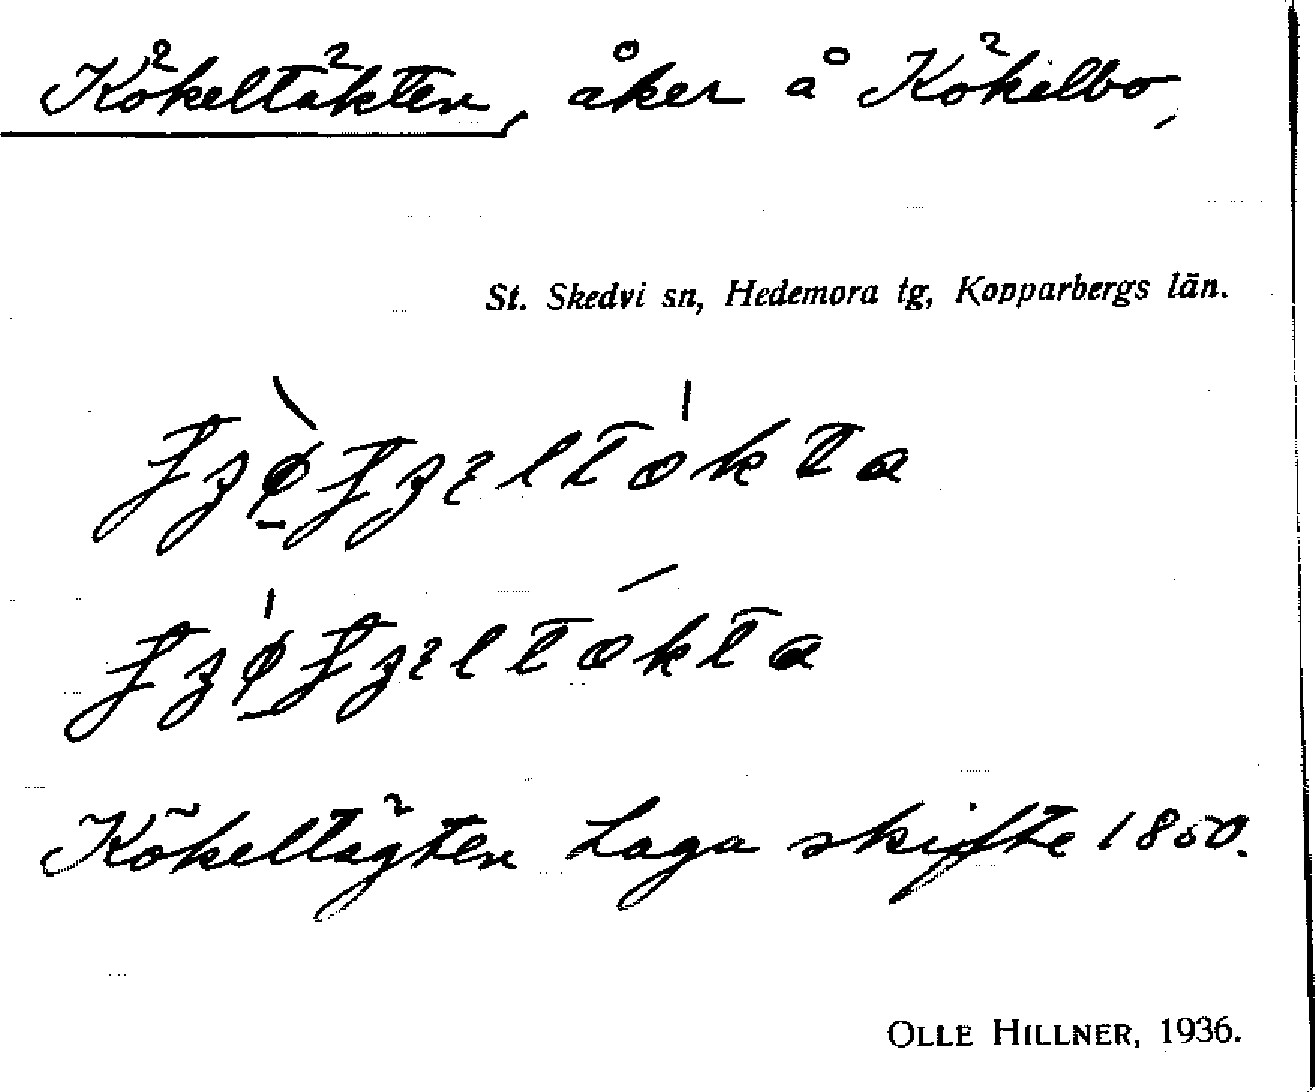 Kökeltäkten, åker å Kökelbo,
St. Skedvi sn, Hedemora tg, Kopparbergs län.
Kökeltägten Laga skifte 1850.
OLLE HILLNER, 1936.